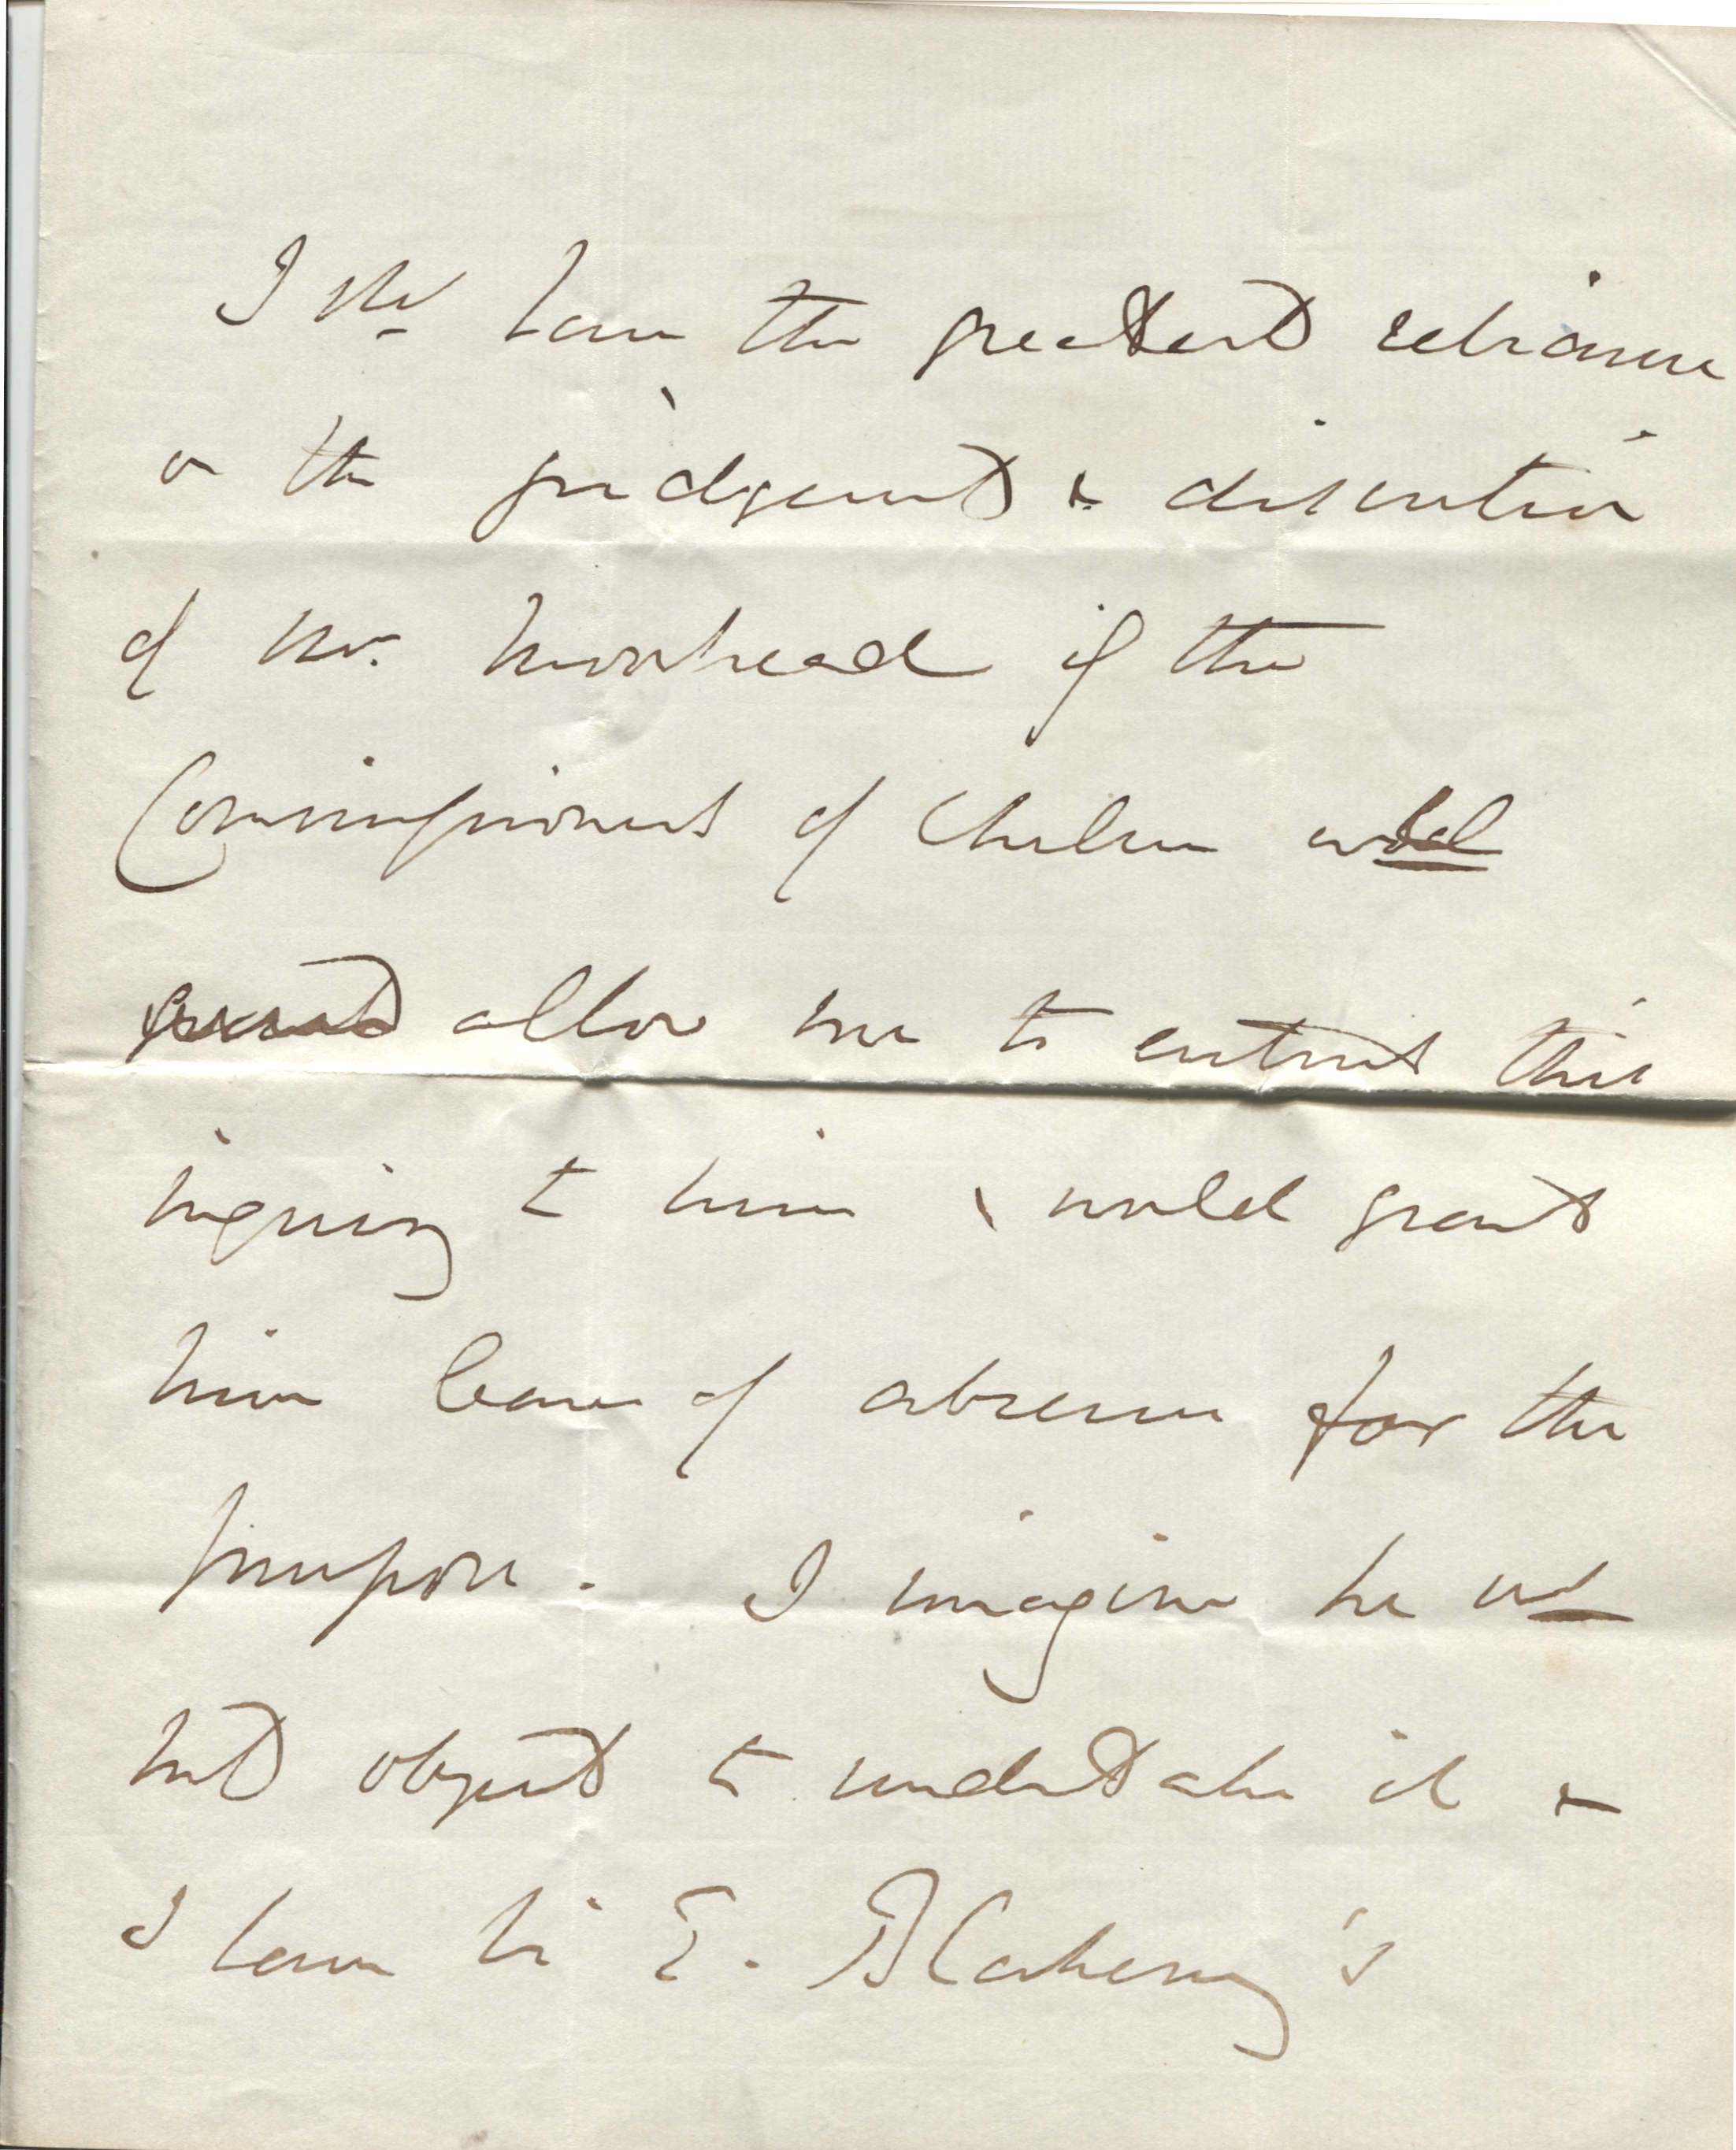 I shd have the greatest reliance
on the judgement & discretion
of Mr. Moorhead if the
Commissioners of Chelsea wd
allow me to entrust this
inquiry to him & would grant
him leave of absence for the
purpose. I imagine he wd
not object to undertake it &
I have Sir E. Blakeney's